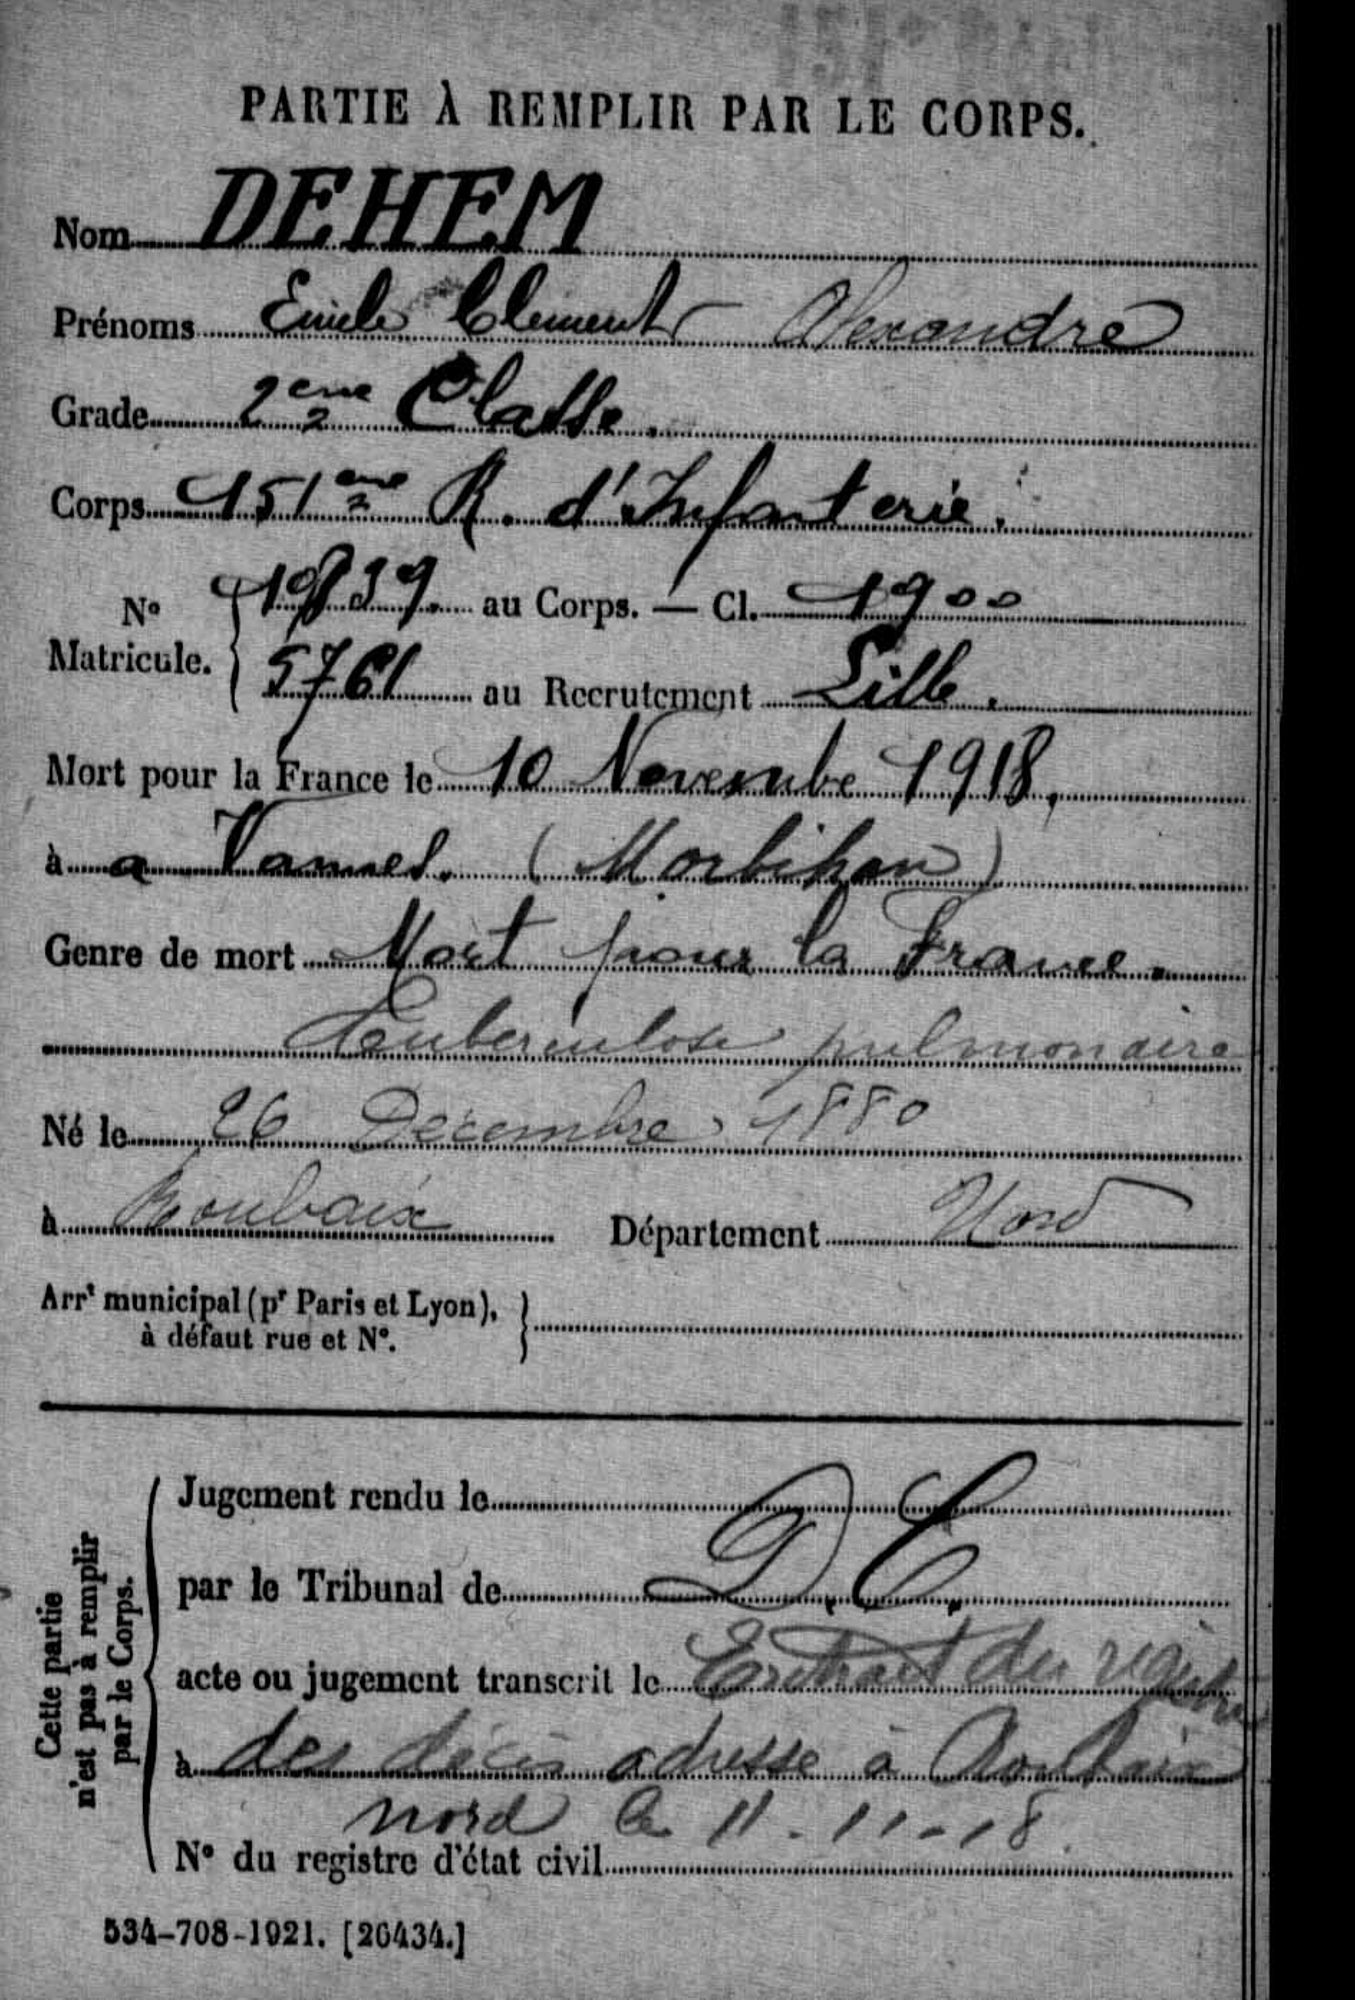 PARTIE À REMPLIR PAR LE CORPS.
Nom DEHEM
Prénoms Emile Clement Alexandre
Grade 2eme Classe.
Corps 151eme R. d'Infanterie.
N° Matricule. { 19839. au Corps. — Cl. 1900
5761 au Recrutement Lille.
Mort pour la France le 10 Novembe 1918,
à a Vannes. (Morbihan)
Genre de mort Mort pour la France.
Tuberculose pulmonaire
Né le 26 Décembre 1880
à Roubaix Département Nord
Arrt municipal (pr Paris et Lyon), }
à défaut rue et N°.
Cette partie
n'est pas à remplir
par le Corps.
Jugement rendu le
par le Tribunal de D.C.
acte ou jugement transcrit le Extrait du registre
à des décès adressé à Roubaix
nord le 11-11-18
N° du registre d'état civil
534-708-1921. [26434.]